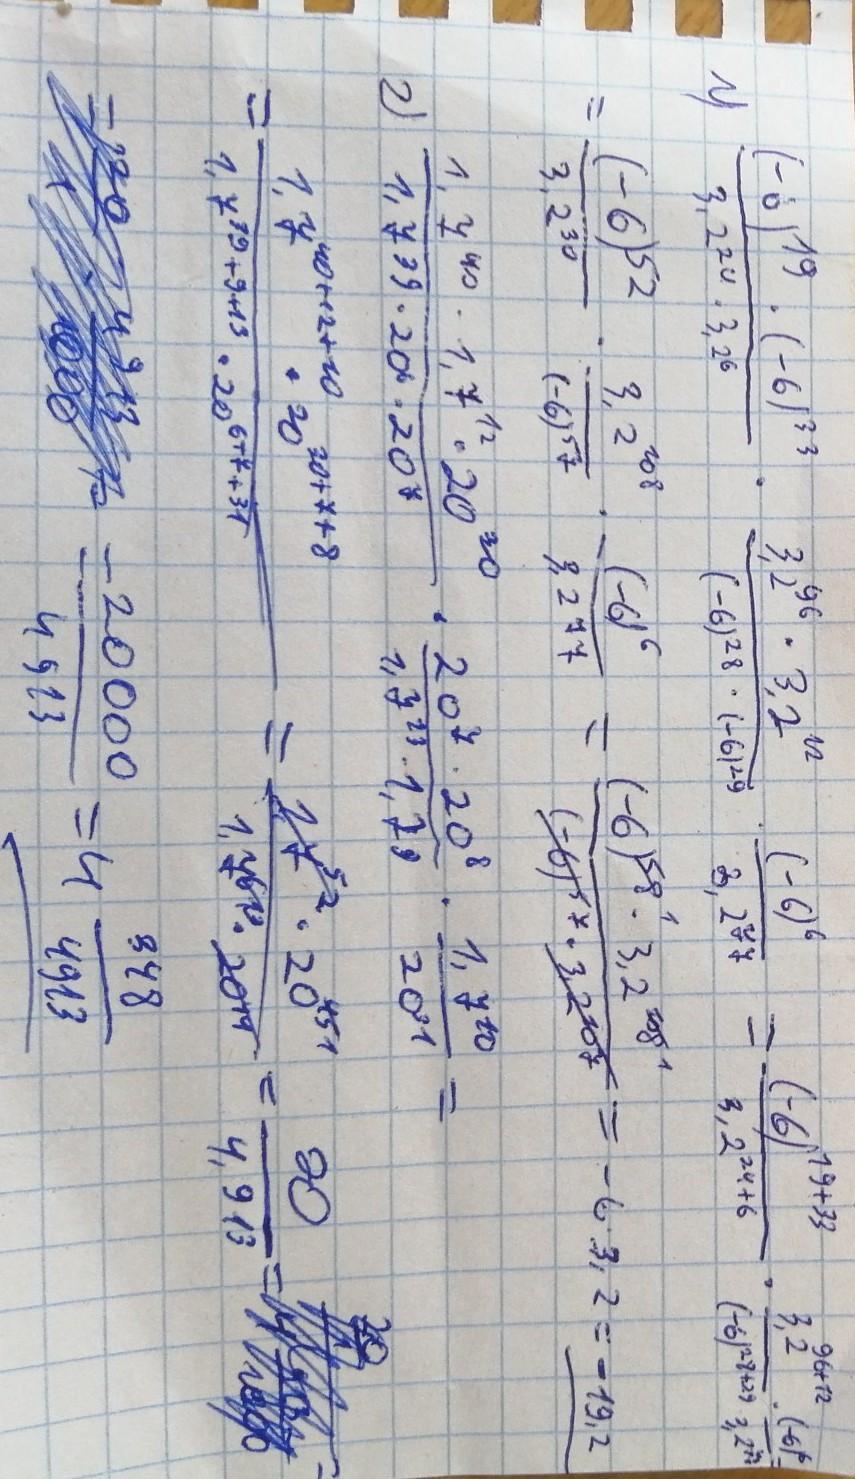 1) (-6)^19 · (-6)^33 / 3,2^24 · 3,2^6 · 3,2^96 · 3,2^12 / (-6)^28 · (-6)^29 · (-6)^6 / 3,2^77 = (-6)^19+33 / 3,2^24+6 · 3,2^96+12 / (-6)^28+29 · (-6)^6 / 3,2^77 =
= (-6)^52 / 3,2^30 · 3,2^108 / (-6)^57 · (-6)^6 / 3,2^77 = (-6)^58 1 · 3,2^108 1 / (-6)^57 · 3,2^107 = -6·3,2 = -19,2
2) 1,7^40 · 1,7^12 · 20^30 / 1,7^39 · 20^6 · 20^7 · 20^7 · 20^8 / 1,7^13 · 1,7^9 · 1,7^10 / 20^31 =
= 1,7^40+12+10 · 20^30+7+8 / 1,7^39+9+13 · 20^6+7+31 = 20^45 1 = 20 / 4,913 =
= -20000 / 4913 = 4 348/4913